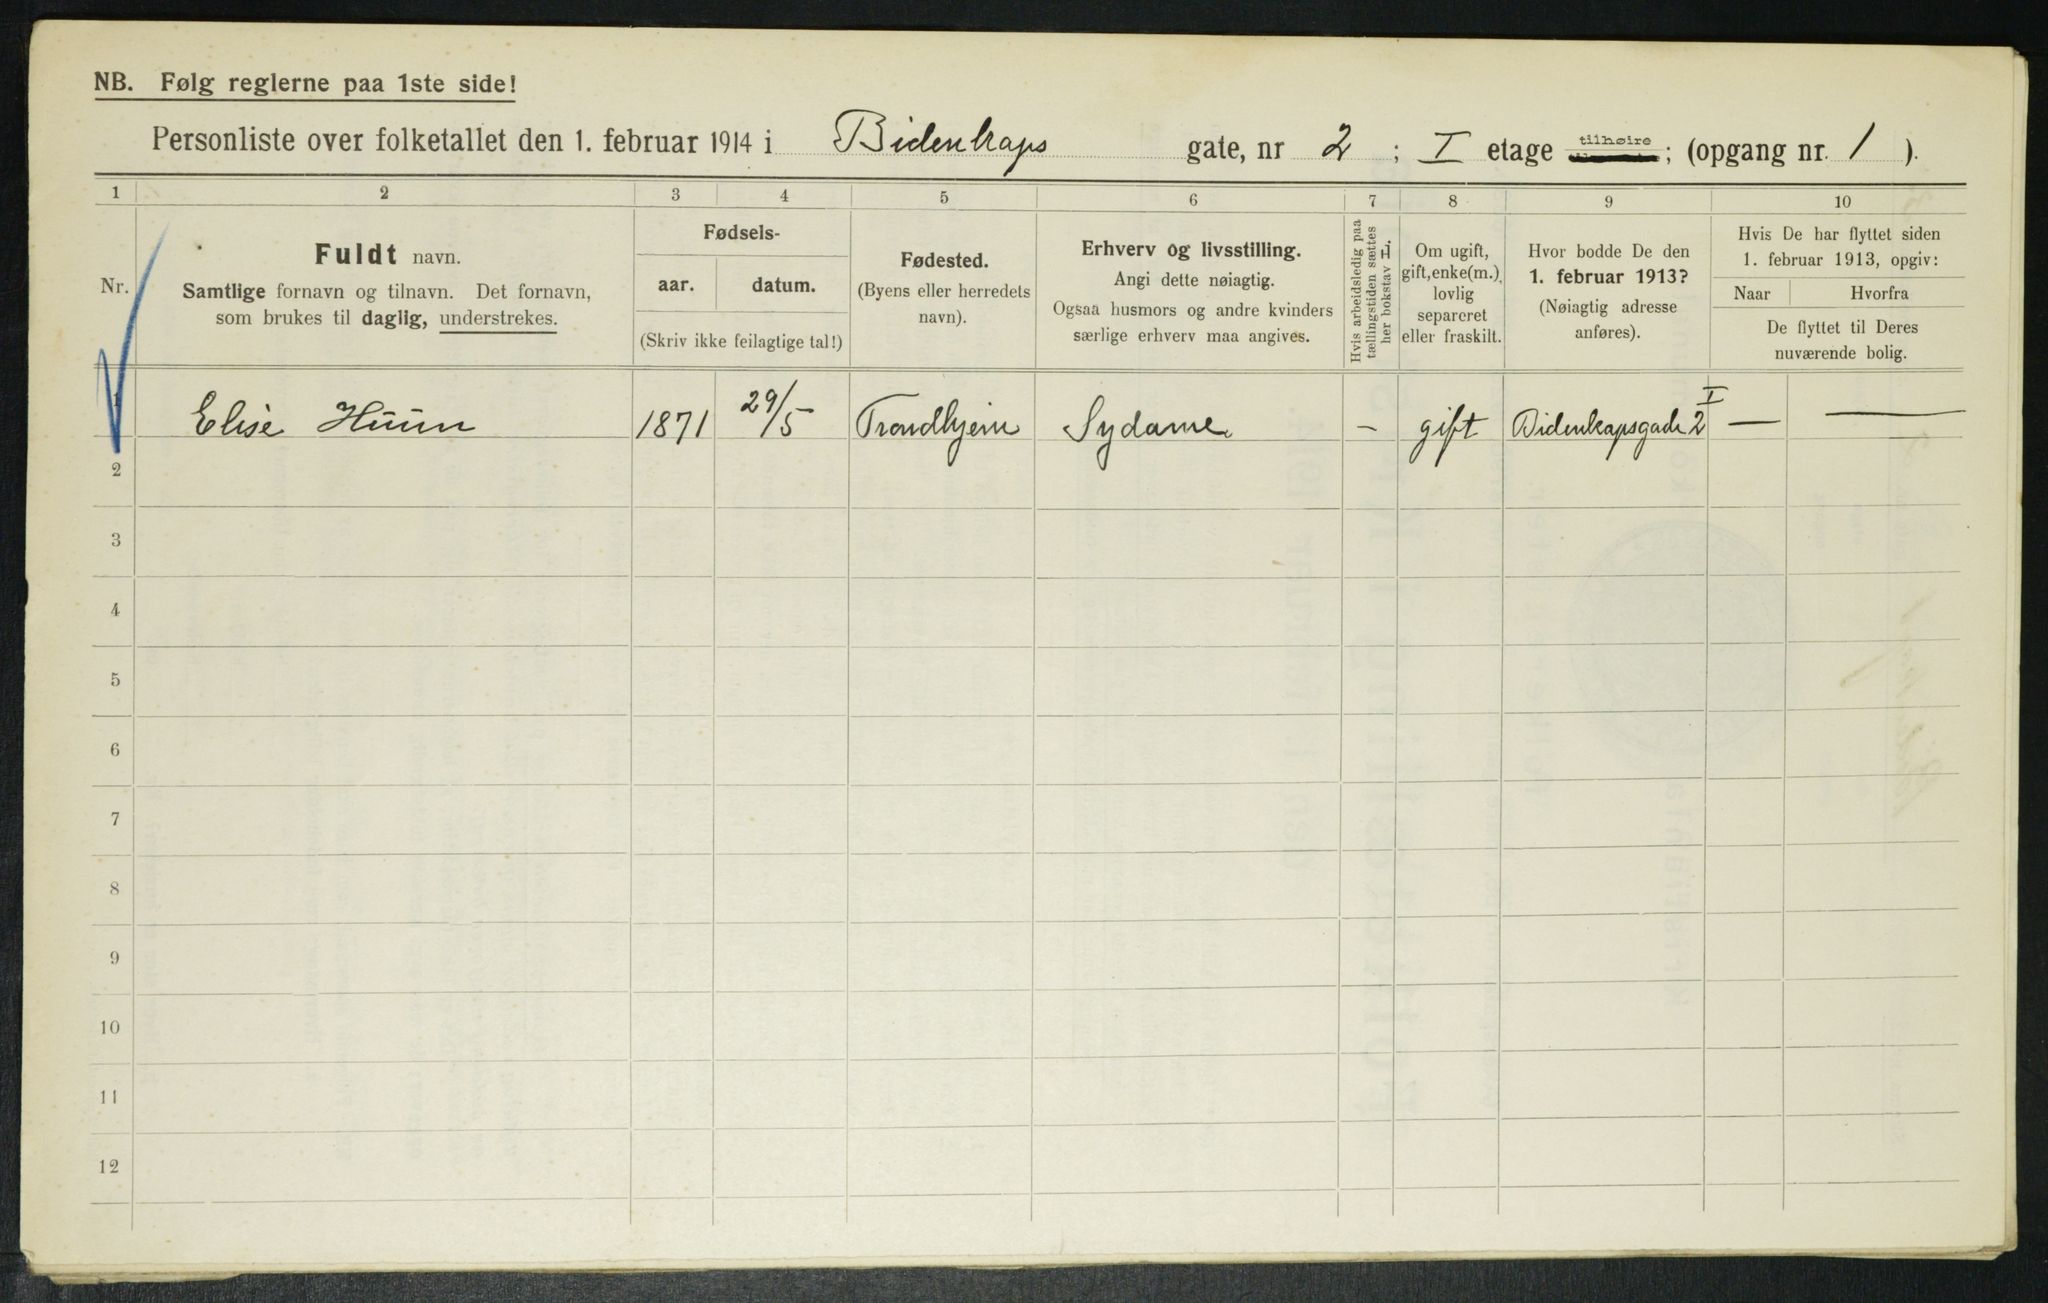 NB. Følg reglerne paa 1ste side!
Personliste over folketallet den 1. februar 1914 i Bidenkaps gate, nr 2 ; I etage tilhøire ; (opgang nr. 1 ).
1 2 3 4 5 6 7 8 9 10
Nr.
Fuldt navn.
Samtlige fornavn og tilnavn. Det fornavn,
som brukes til daglig, understrekes.
Fødsels-
aar. datum.
(Skriv ikke feilagtige tal!)
Fødested.
(Byens eller herredets
navn).
Erhverv og livsstilling.
Angi dette nøiagtig.
Ogsaa husmors og andre kvinders
særlige erhverv maa angives.
Hvis arbeidsledig paa
tællingstiden sættes
her bokstav L.
Om ugift,
gift, enke(m.),
lovlig
separeret
eller fraskilt.
Hvor bodde De den
1. februar 1913?
(Nøiagtig adresse
anføres).
Hvis De har flyttet siden
1. februar 1913, opgiv:
Naar Hvorfra
De flyttet til Deres
nuværende bolig.
1 Elise Huun 1871 29/5 Trondhjem Sydame - gift Bidenkapsgade 2 I — —
2
3
4
5
6
7
8
9
10
11
12